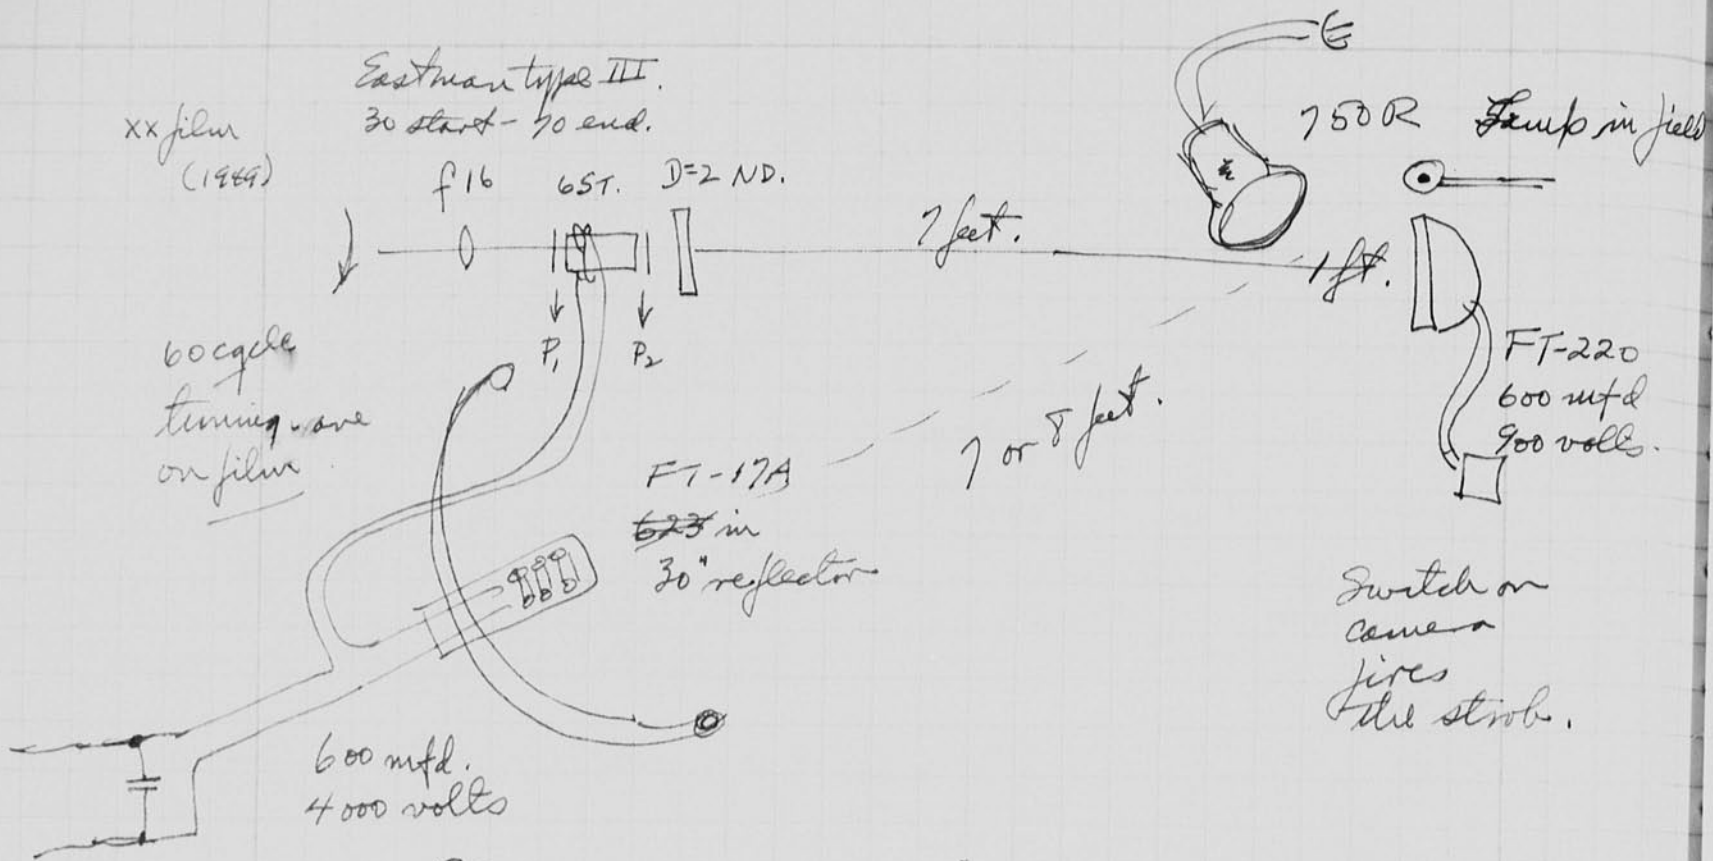 Eastman type III.
30 start - 70 end.
xx film
(1949)
f16
6ST.
D=2 ND.
750R
Lamp in field
7 feet.
1 ft.
P1
P2
60 cycle
timing wave
on film
7 or 8 feet.
FT-220
600 mfd
900 volts.
FT-17A
623 in
30" reflector
Switch on
camera
fires
the strob.
600 mfd.
4000 volts